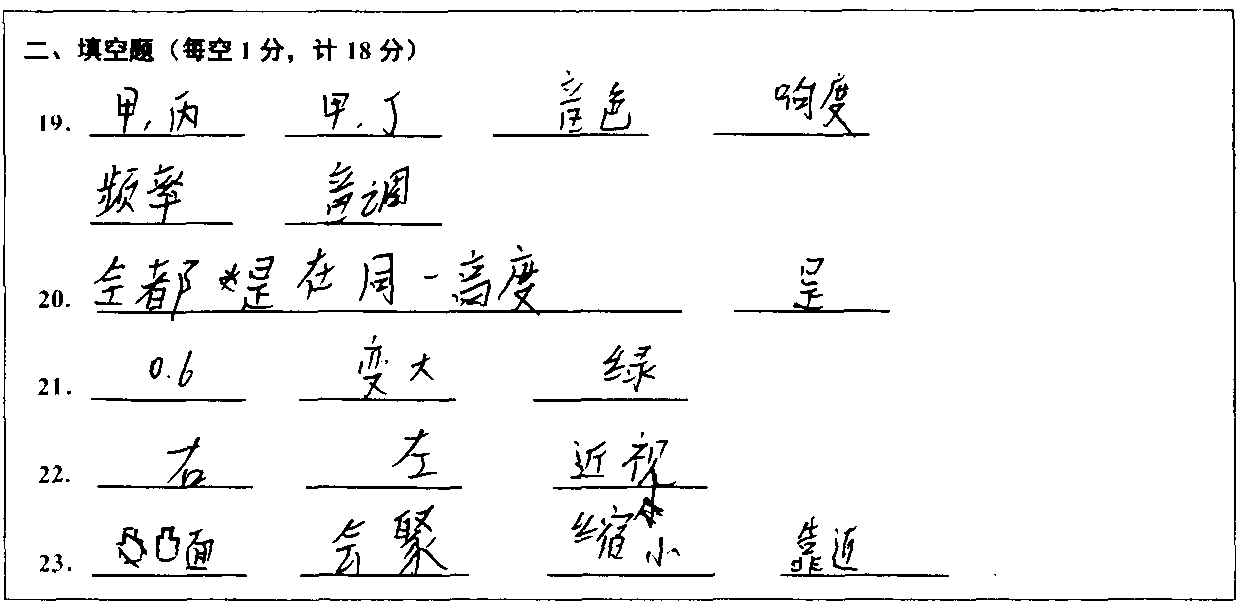 二、填空题（每空1分，计18分）
19. 甲、丙 甲、丁 音色 响度
频率 音调
20. 全都是在同一高度 是
21. 0.6 变大 绿
22. 右 左 近视
23. 凸面 会聚 缩小 靠近